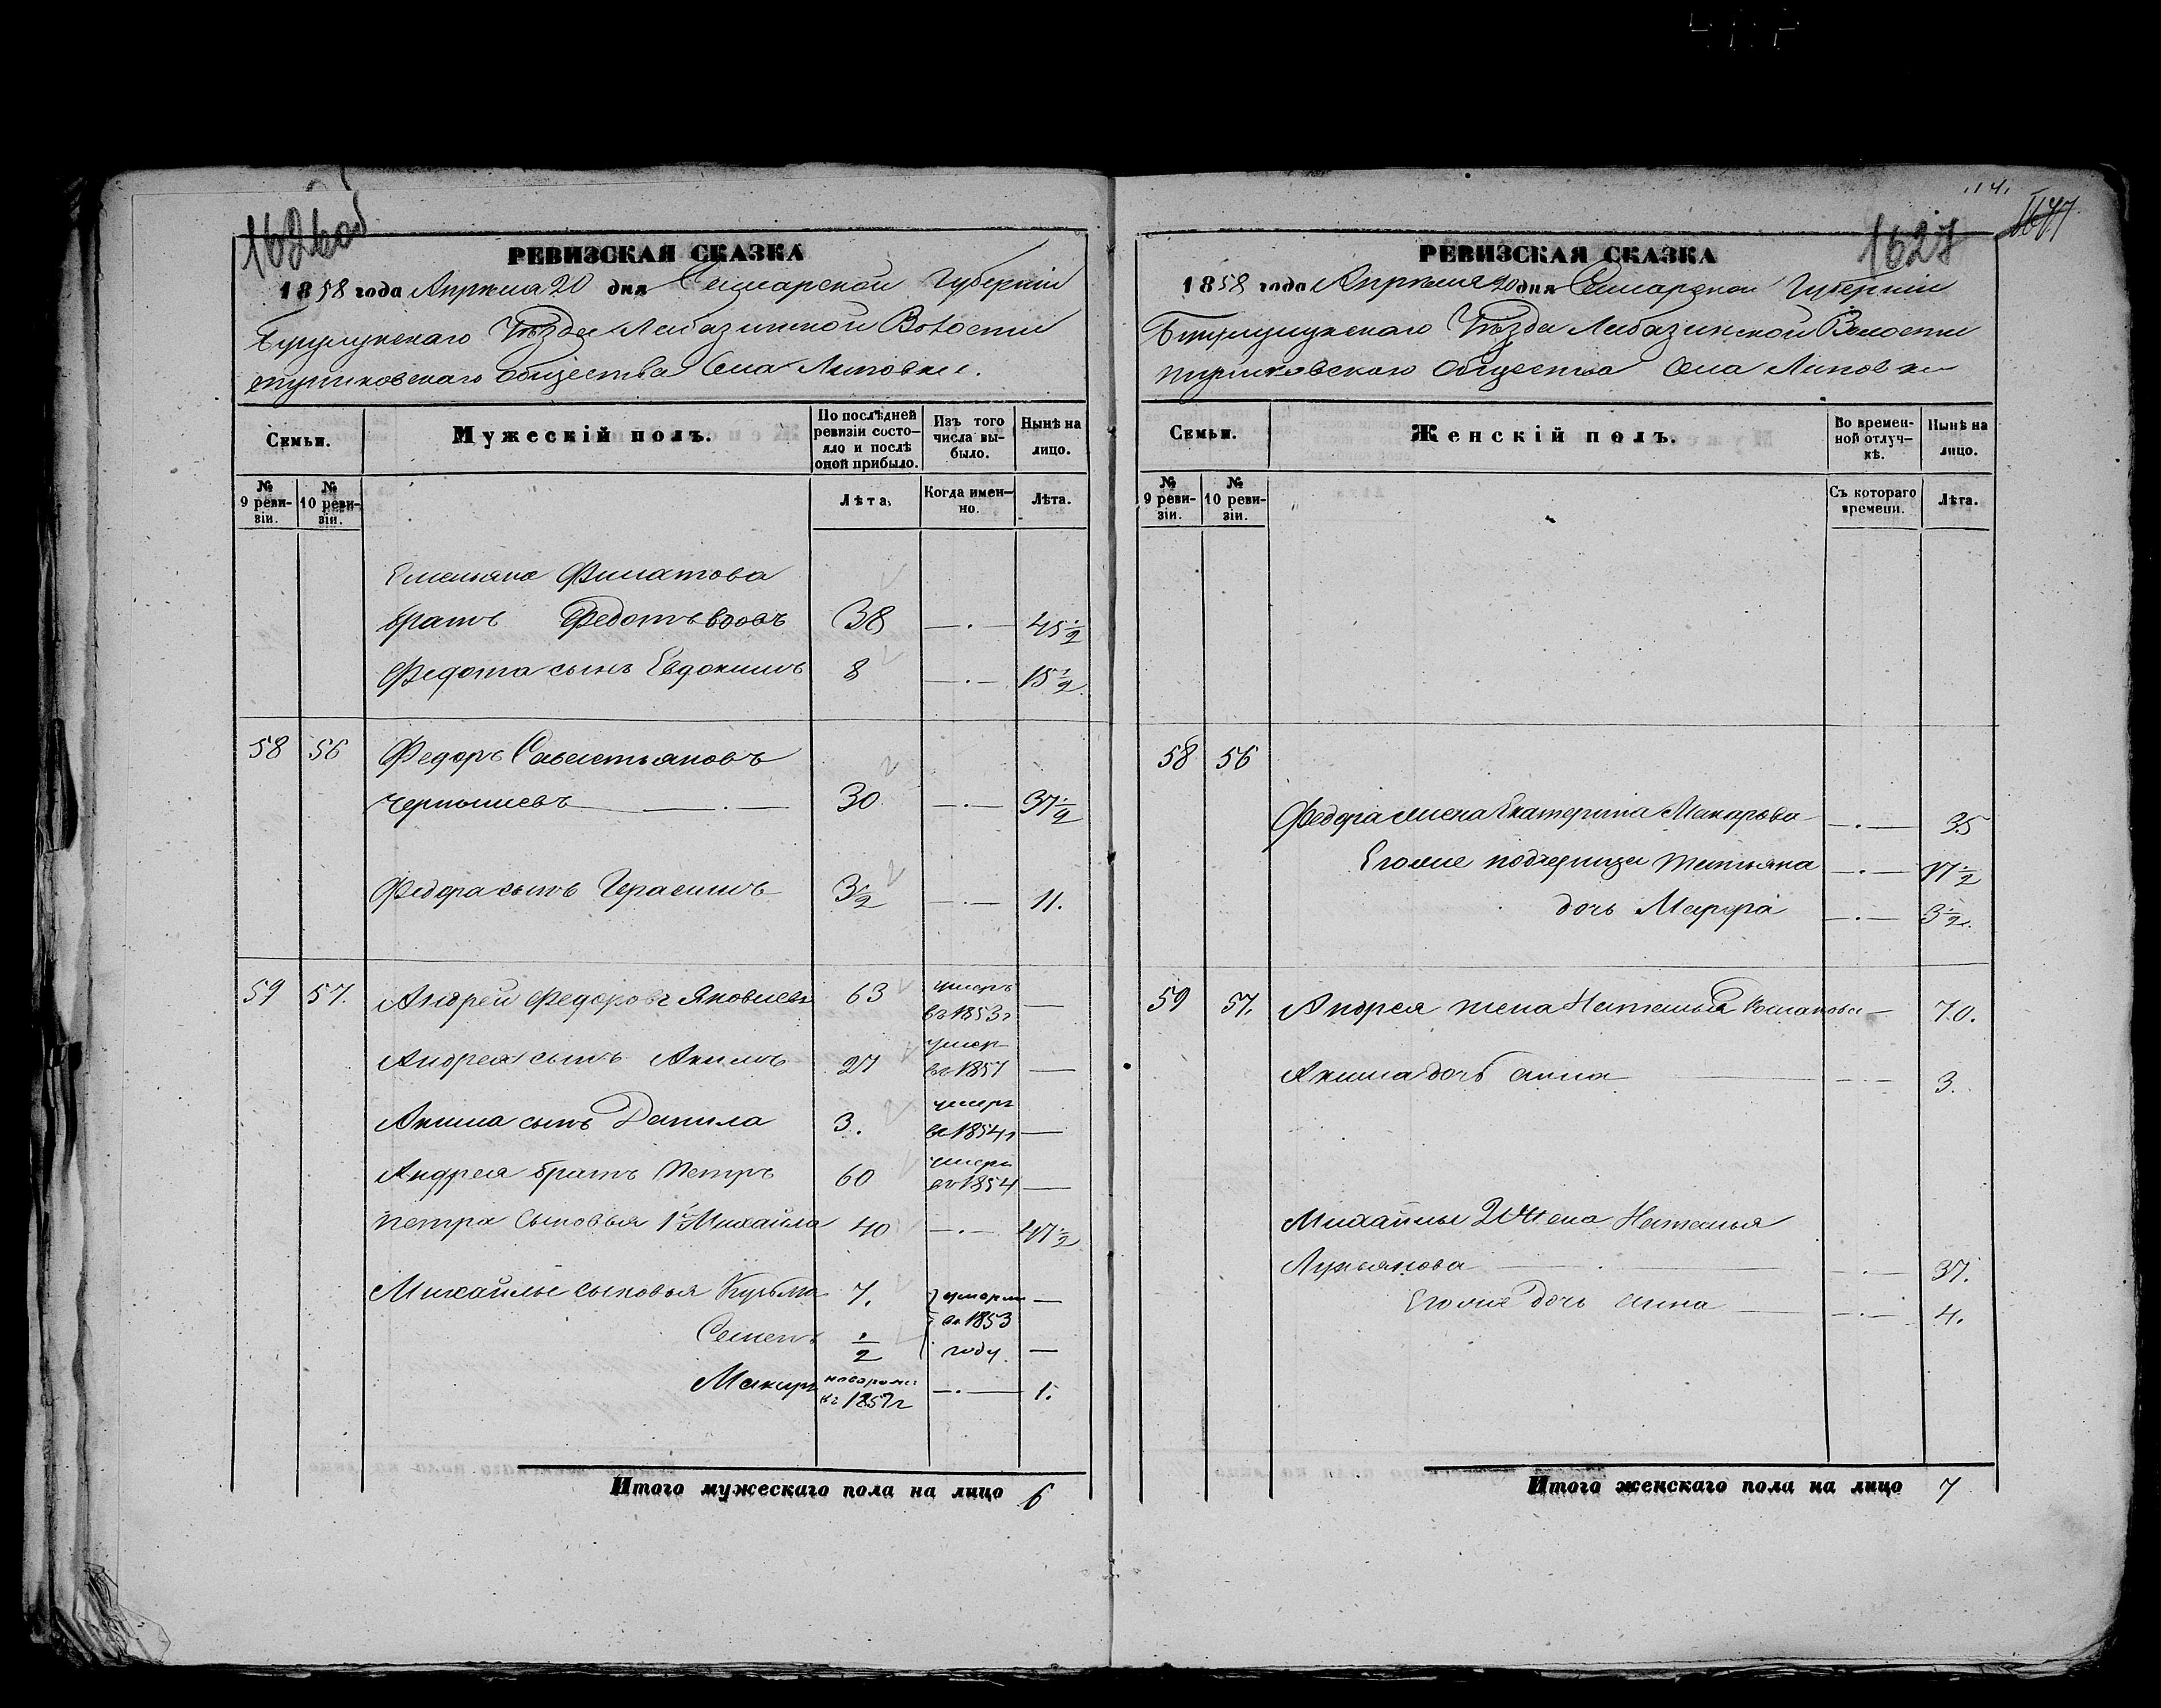 1626об
РЕВИЗСКАЯ СКАЗКА
1858 года Апреля 20 дня Самарской Губернии
Бузулукскаго Уѣзда Лабазинской Волости
общества Села Липовки.
Семьи.
Мужескій полъ.
По послѣдней ревизіи состояло и послѣ оной прибыло.
Изъ того числа выбыло.
Нынѣ на лицо.
№ 9 ревизіи.
№ 10 ревизіи.
Лѣта.
Когда именно.
Лѣта.
Емельяна Филатова
братъ Федотъ вдовъ 38 —·— 45 1/2
Федота сынъ Евдокимъ 8 —·— 15 1/2
58 56 Федоръ Савастьяновъ
Чернышевъ —·— 30 —·— 37 1/2
Федора сынъ Герасимъ 3 1/2 —·— 11.
59 57. Андрей Федоровъ Яковлевъ 63 умеръ въ 1853г —
Андрея сынъ Акимъ 27 умер въ 1857 —
Акима сынъ Данила 3. умеръ въ 1854г —
Андрея братъ Петръ 60 умеръ въ 1854 —
Петра Сыновья 1й Михайла 40 —·— 47 1/2
Михайлы сыновья Кузьма 7. умерли —
Семенъ 1/2 въ 1853 году —
Макаръ новорож: въ 1857г —·— 1.
Итого мужескаго пола на лицо 6
14.
1647
1627
РЕВИЗСКАЯ СКАЗКА
1858 года Апреля 20 дня Самарской Губернии
Бузулукскаго Уѣзда Лабазинской Волости
общества Села Липовки
Семьи.
Женскій полъ.
Во временной отлучкѣ.
Нынѣ на лицо.
№ 9 ревизіи.
№ 10 ревизіи.
Съ котораго времени.
Лѣта.
58 56
Федора жена Екатерина Макарова —·— 35
Его же падчерица Татьяна —·— 17 1/2
дочь Марфа —·— 3 1/2.
59 57. Андрея жена Наталья — 70.
Акима дочь анна —·— 3.
Михайлы 2 Жена Наталья
Лукьянова —·— 37.
Его же дочь анна —·— 4.
Итого женскаго пола на лицо 7